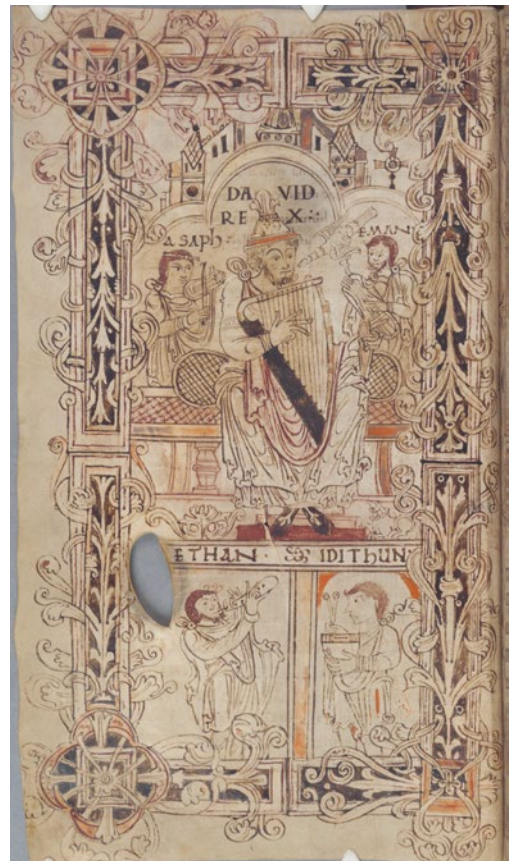 DA VID
RE X
ASAPh EMAN
EThAN · IDIThUN